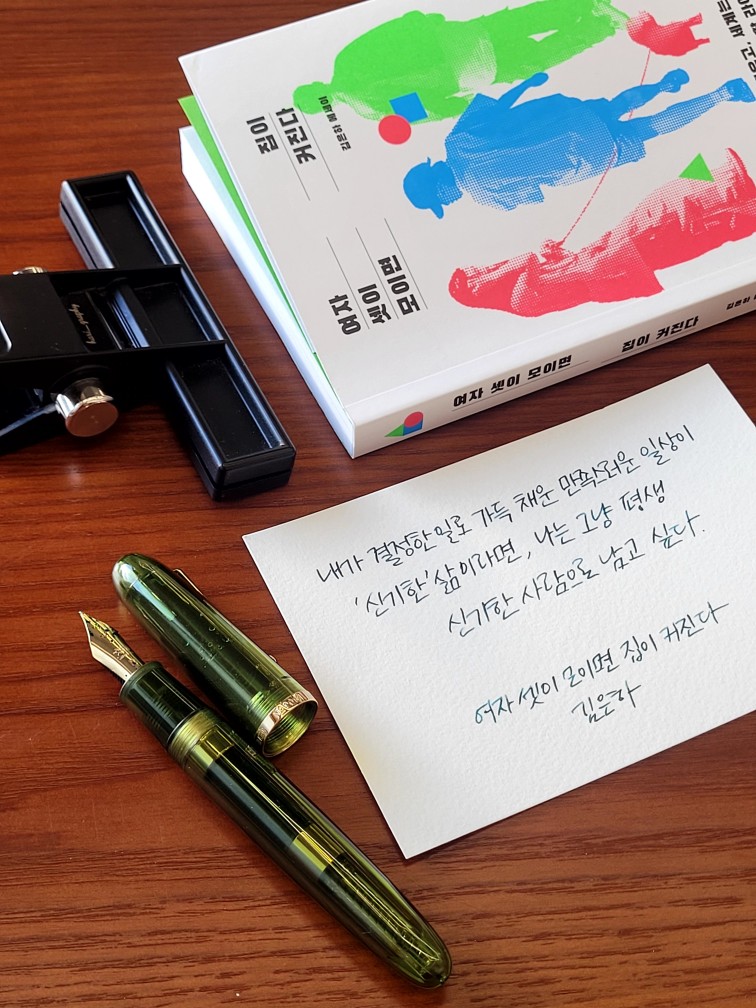 여자
셋이
모이면
집이
커진다
김은하 에세이
여자 셋이 모이면 집이 커진다
김은하
내가 결정한 일로 가득 채운 만족스러운 일상이
'신기한' 삶이라면, 나는 그냥 평생
신기한 사람으로 남고 싶다.
여자 셋이 모이면 집이 커진다
김은하